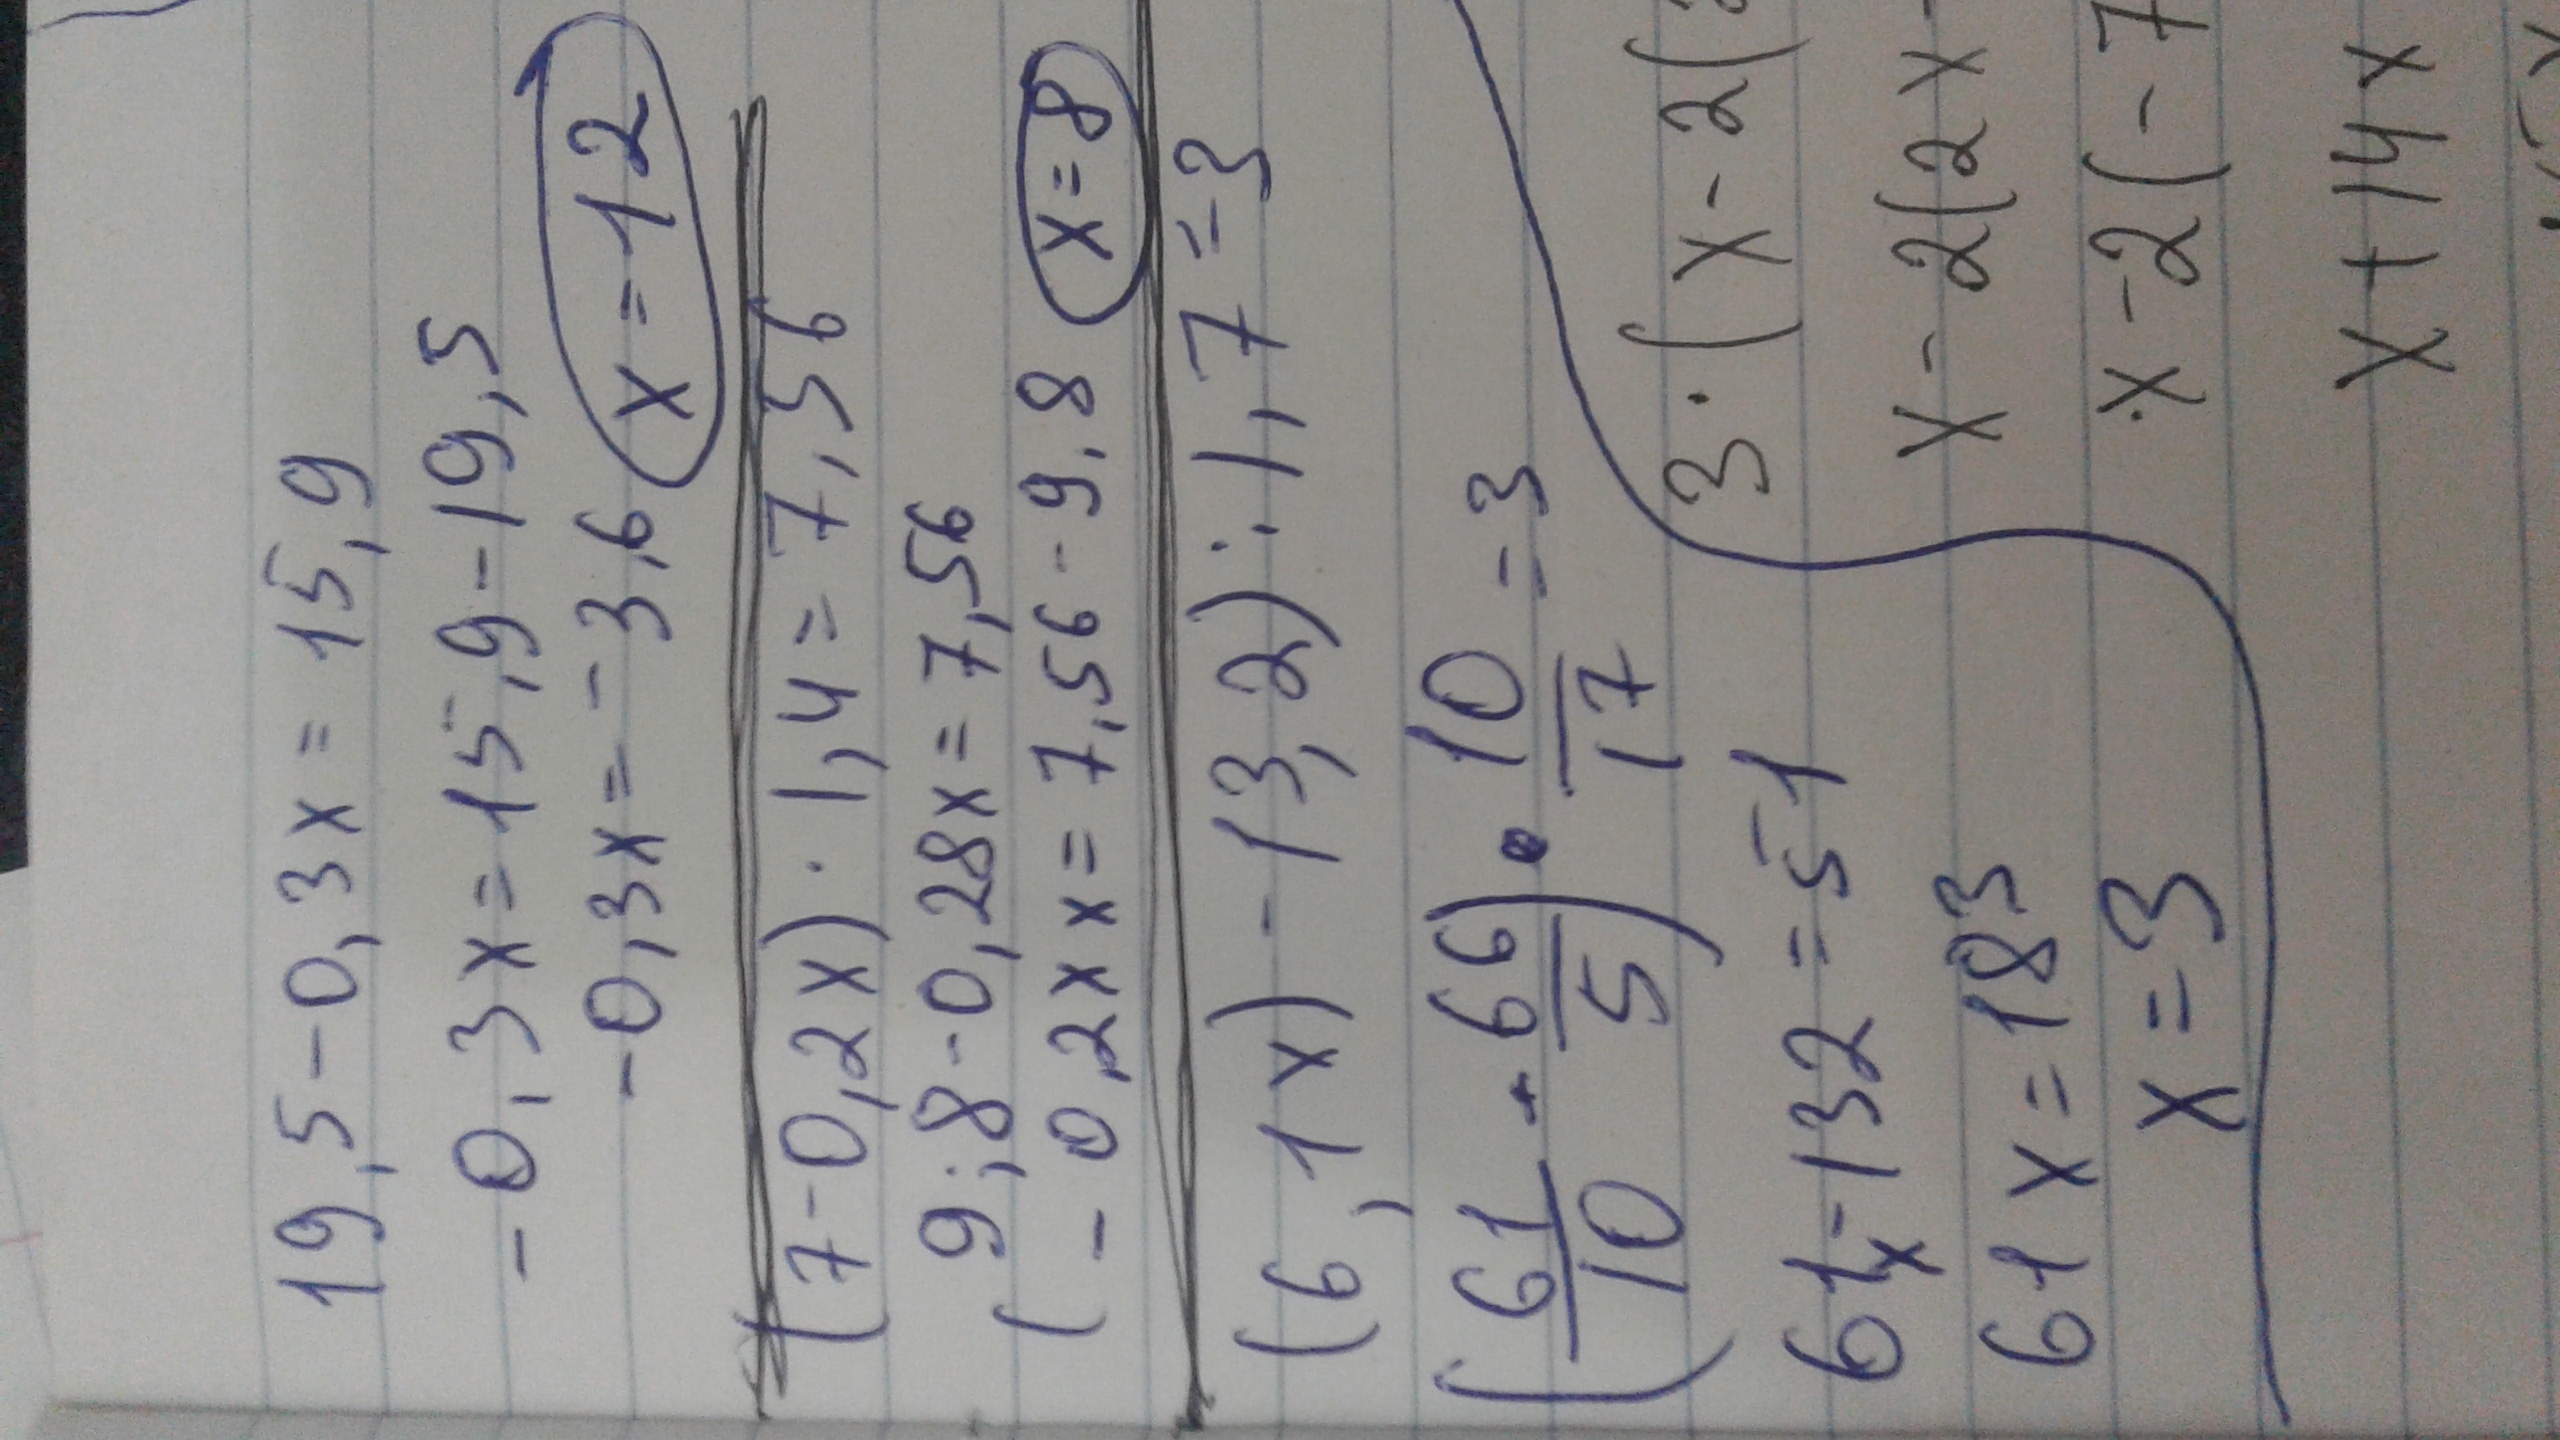 19,5-0,3x=15,9
-0,3x=15,9-19,5
-0,3x=-3,6 x=12
(7-0,2x)·1,4=7,56
9,8-0,28x=7,56
(-0,2x x=7,56-9,8 x=8
(6,1x)-13,2):1,7=3
(61/10 - 66/5)·10/17=3
61x-132=51
61x=183
x=3
3·(x-2(
x-2(2x-
x-2(-7
x+14x